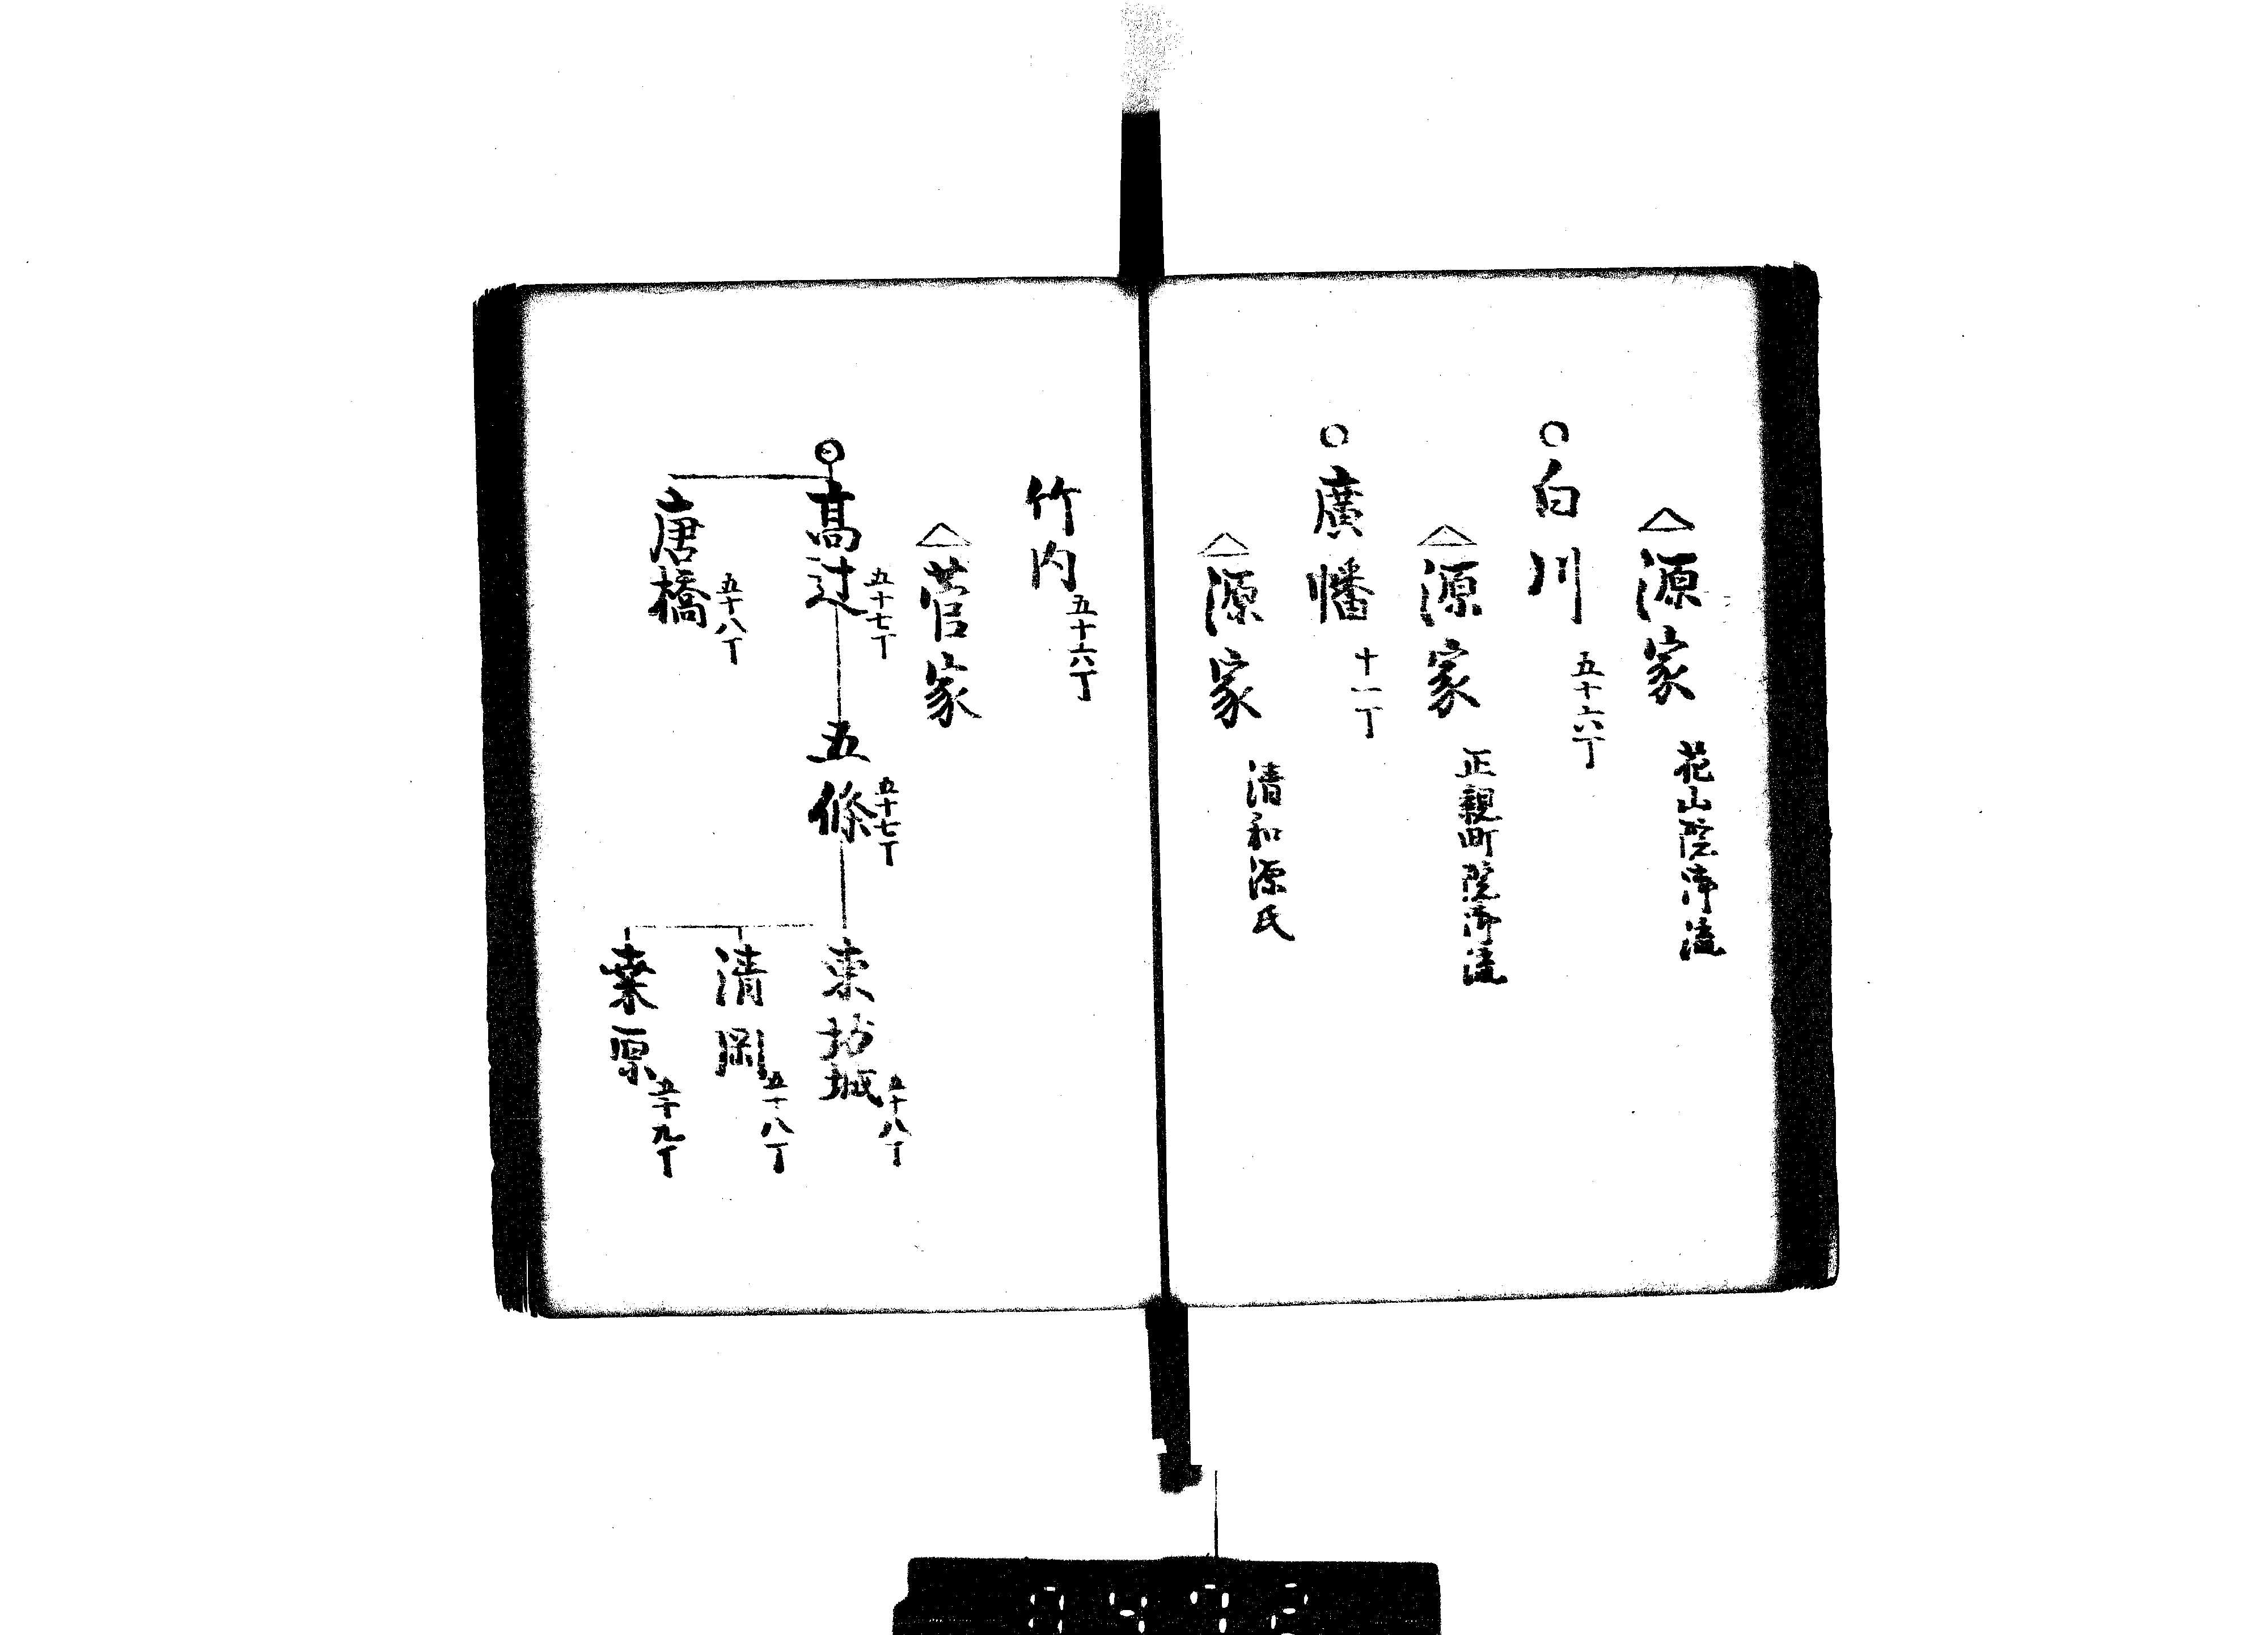 △源家 花山院御流
○白川 五十六丁
△源家 正親町院御流
○廣幡 十一丁
△源家 清和源氏
竹内 五十六丁
△菅家
高辻 五十七丁
五條 五十七丁
東坊城 五十八丁
清岡 五十八丁
桒原 五十九丁
唐橋 五十八丁